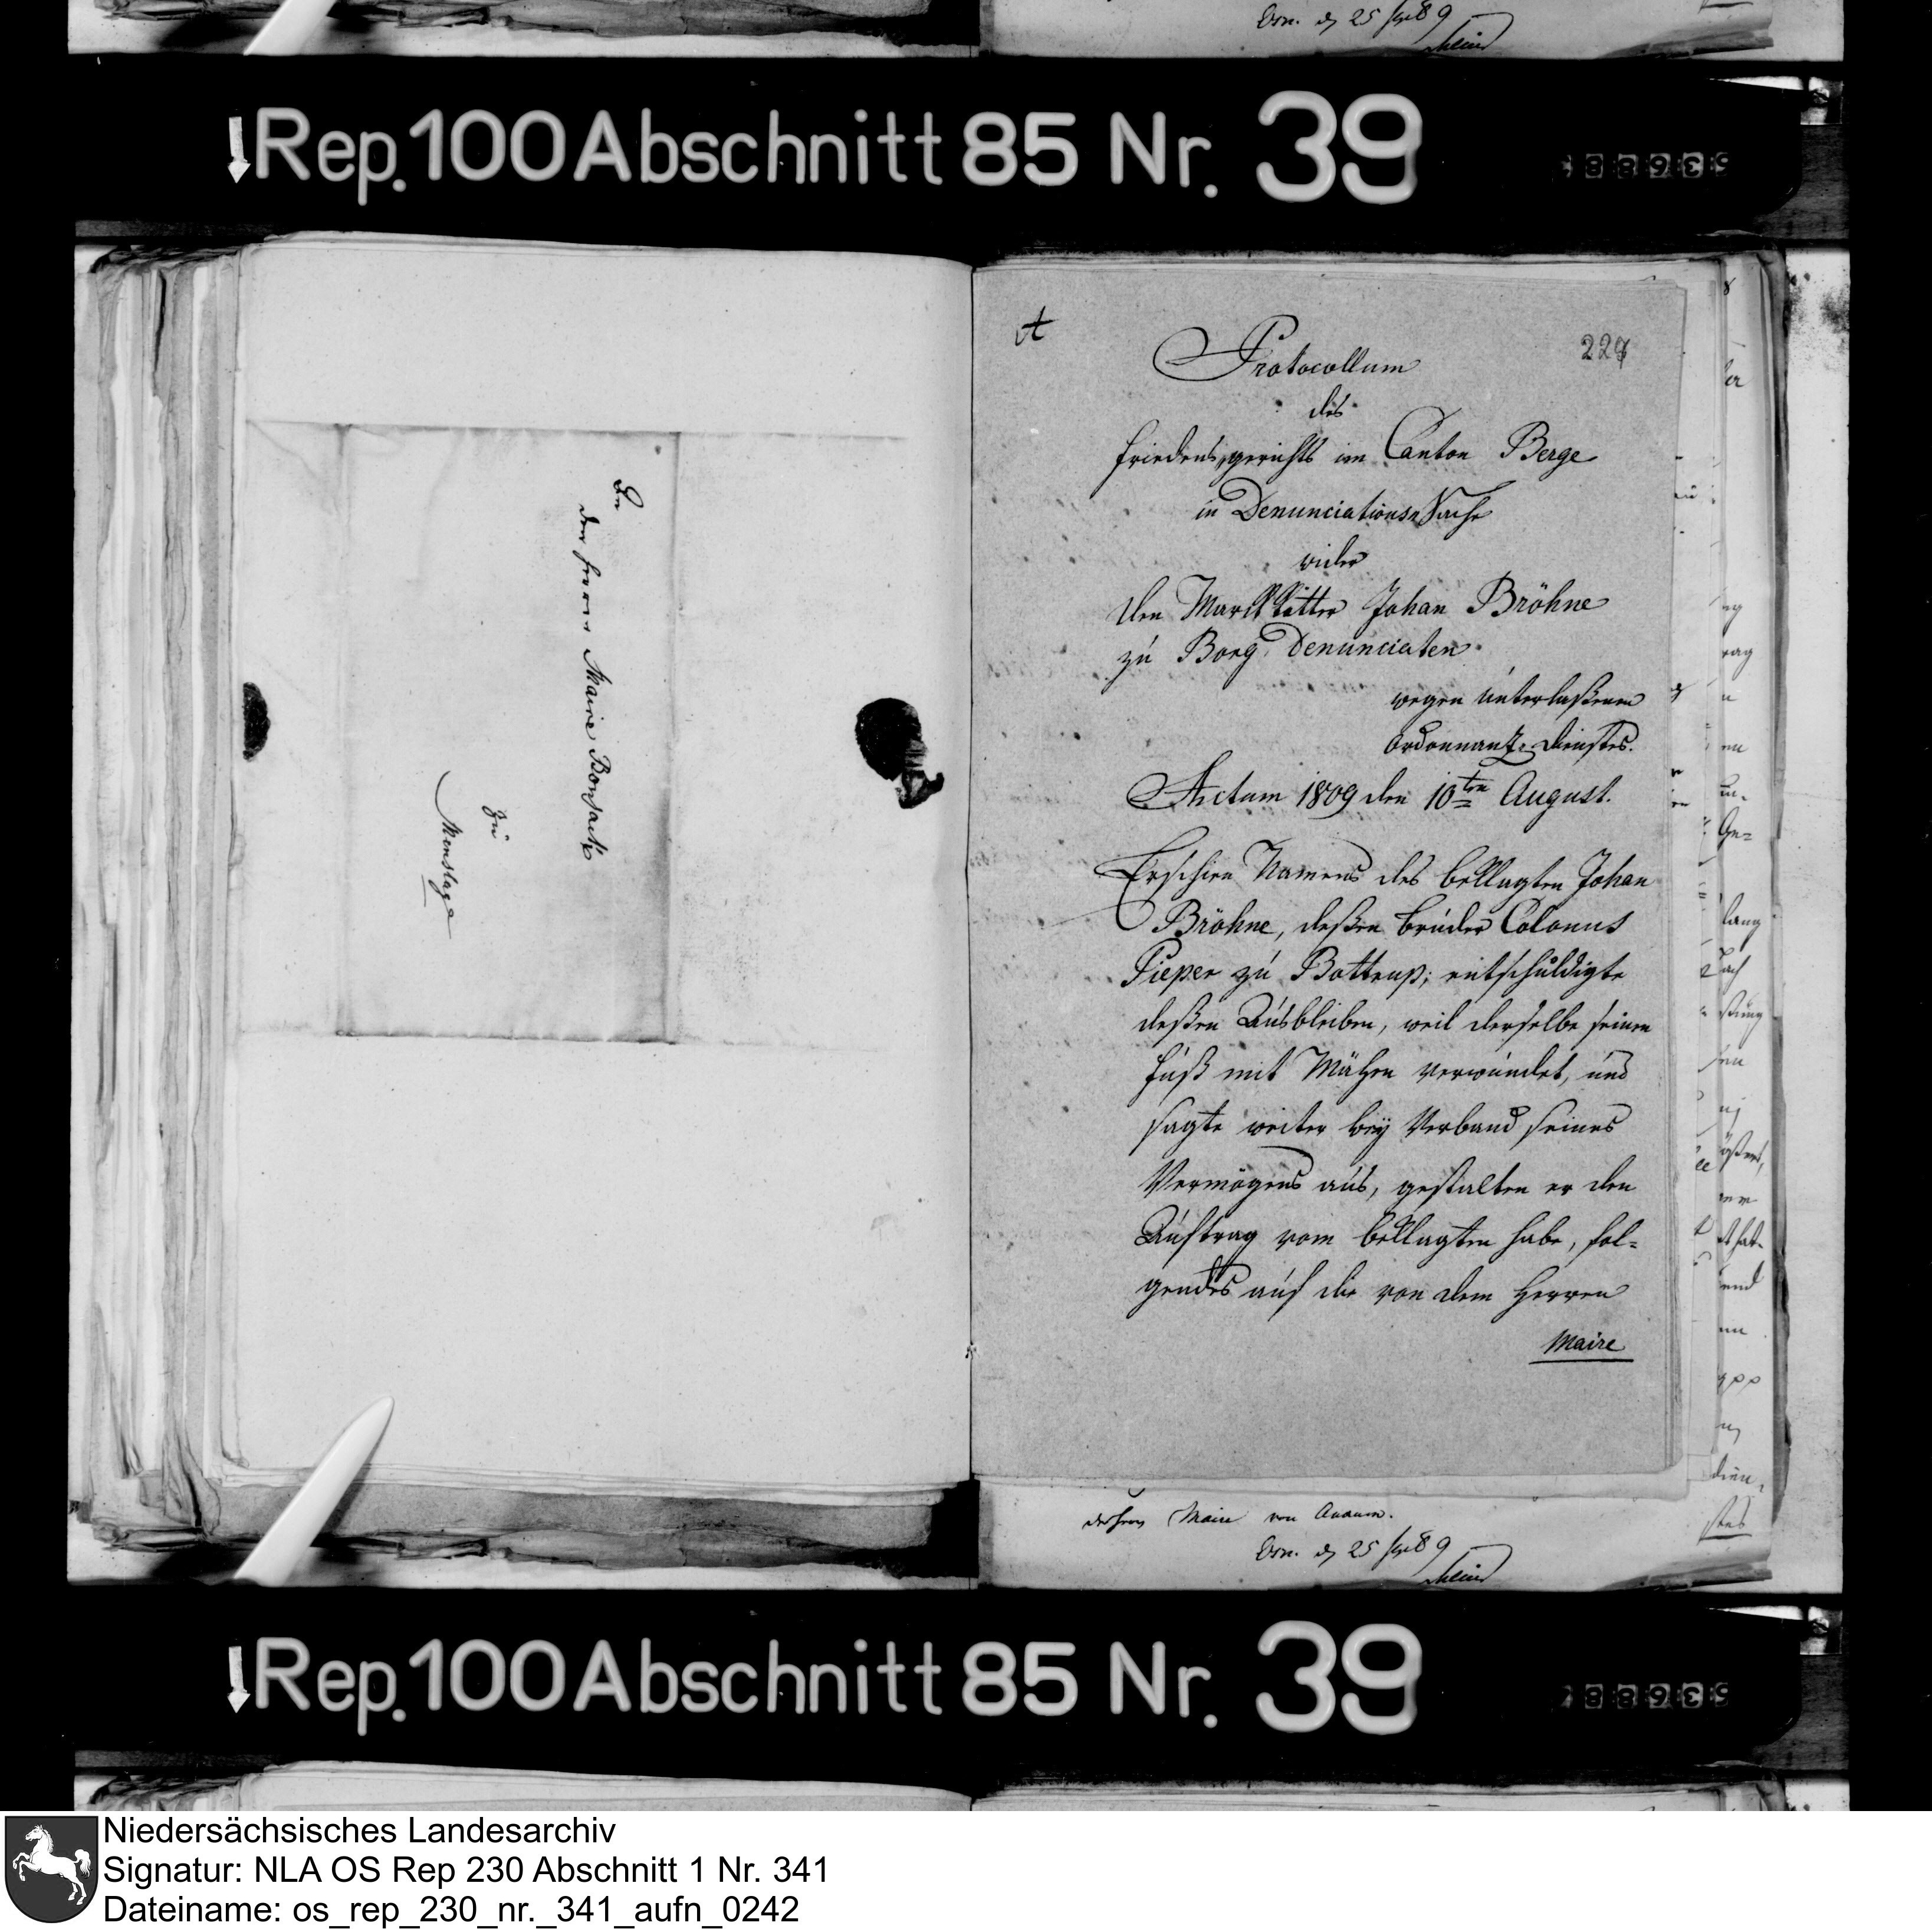 Osn. d 25 Spt 89
Rep. 100 Abschnitt 85 Nr. 39
An
den Herrn Maire Bonsack
zu
Menslage
A
227
Protocollum
des
Friedensgerichts im Canton Berge
in Denunciations Sache
wider
den Markkötter Johan Bröhne
zu Borg Denunciaten
wegen unterlaßenen
Ordonnantz-Dienstes.
Actum 1809 den 10ten August.
Erschien Namens des beklagten Johan
Bröhne, deßen bruder Colonus
Pieper zu Bottrup; entschuldigte
deßen Ausbleiben, weil derselbe seinen
Fuß mit Mähen verwundet, und
sagte weiter bey Verband seines
Vermögens aus, gestalten er den
Auftrag vom beklagten habe, fol=
gendes auf die von dem Herren
Maire
Maire von
Osn. d 25 Spt 89
Rep. 100 Abschnitt 85 Nr. 39
Niedersächsisches Landesarchiv
Signatur: NLA OS Rep 230 Abschnitt 1 Nr. 341
Dateiname: os_rep_230_nr._341_aufn_0242